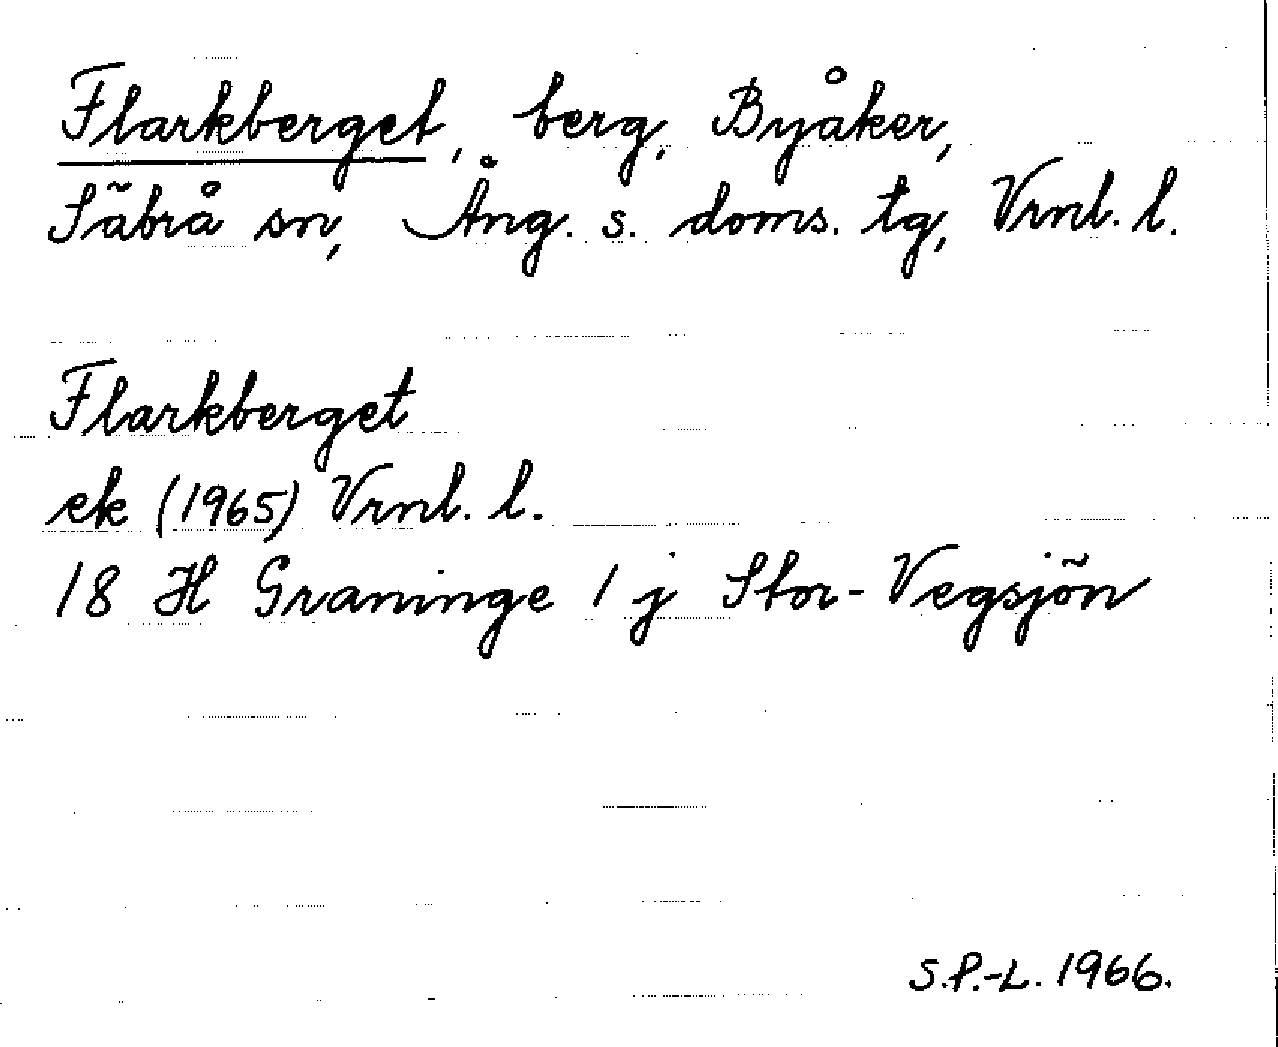 Flarkberget, berg, Byåker,
Säbrå sn, Ång. s. doms. tg, Vrnl. l.
Flarkberget
ek (1965) Vrnl. l.
18 H Graninge 1 j Stor-Vegsjön
S.P.-L. 1966.